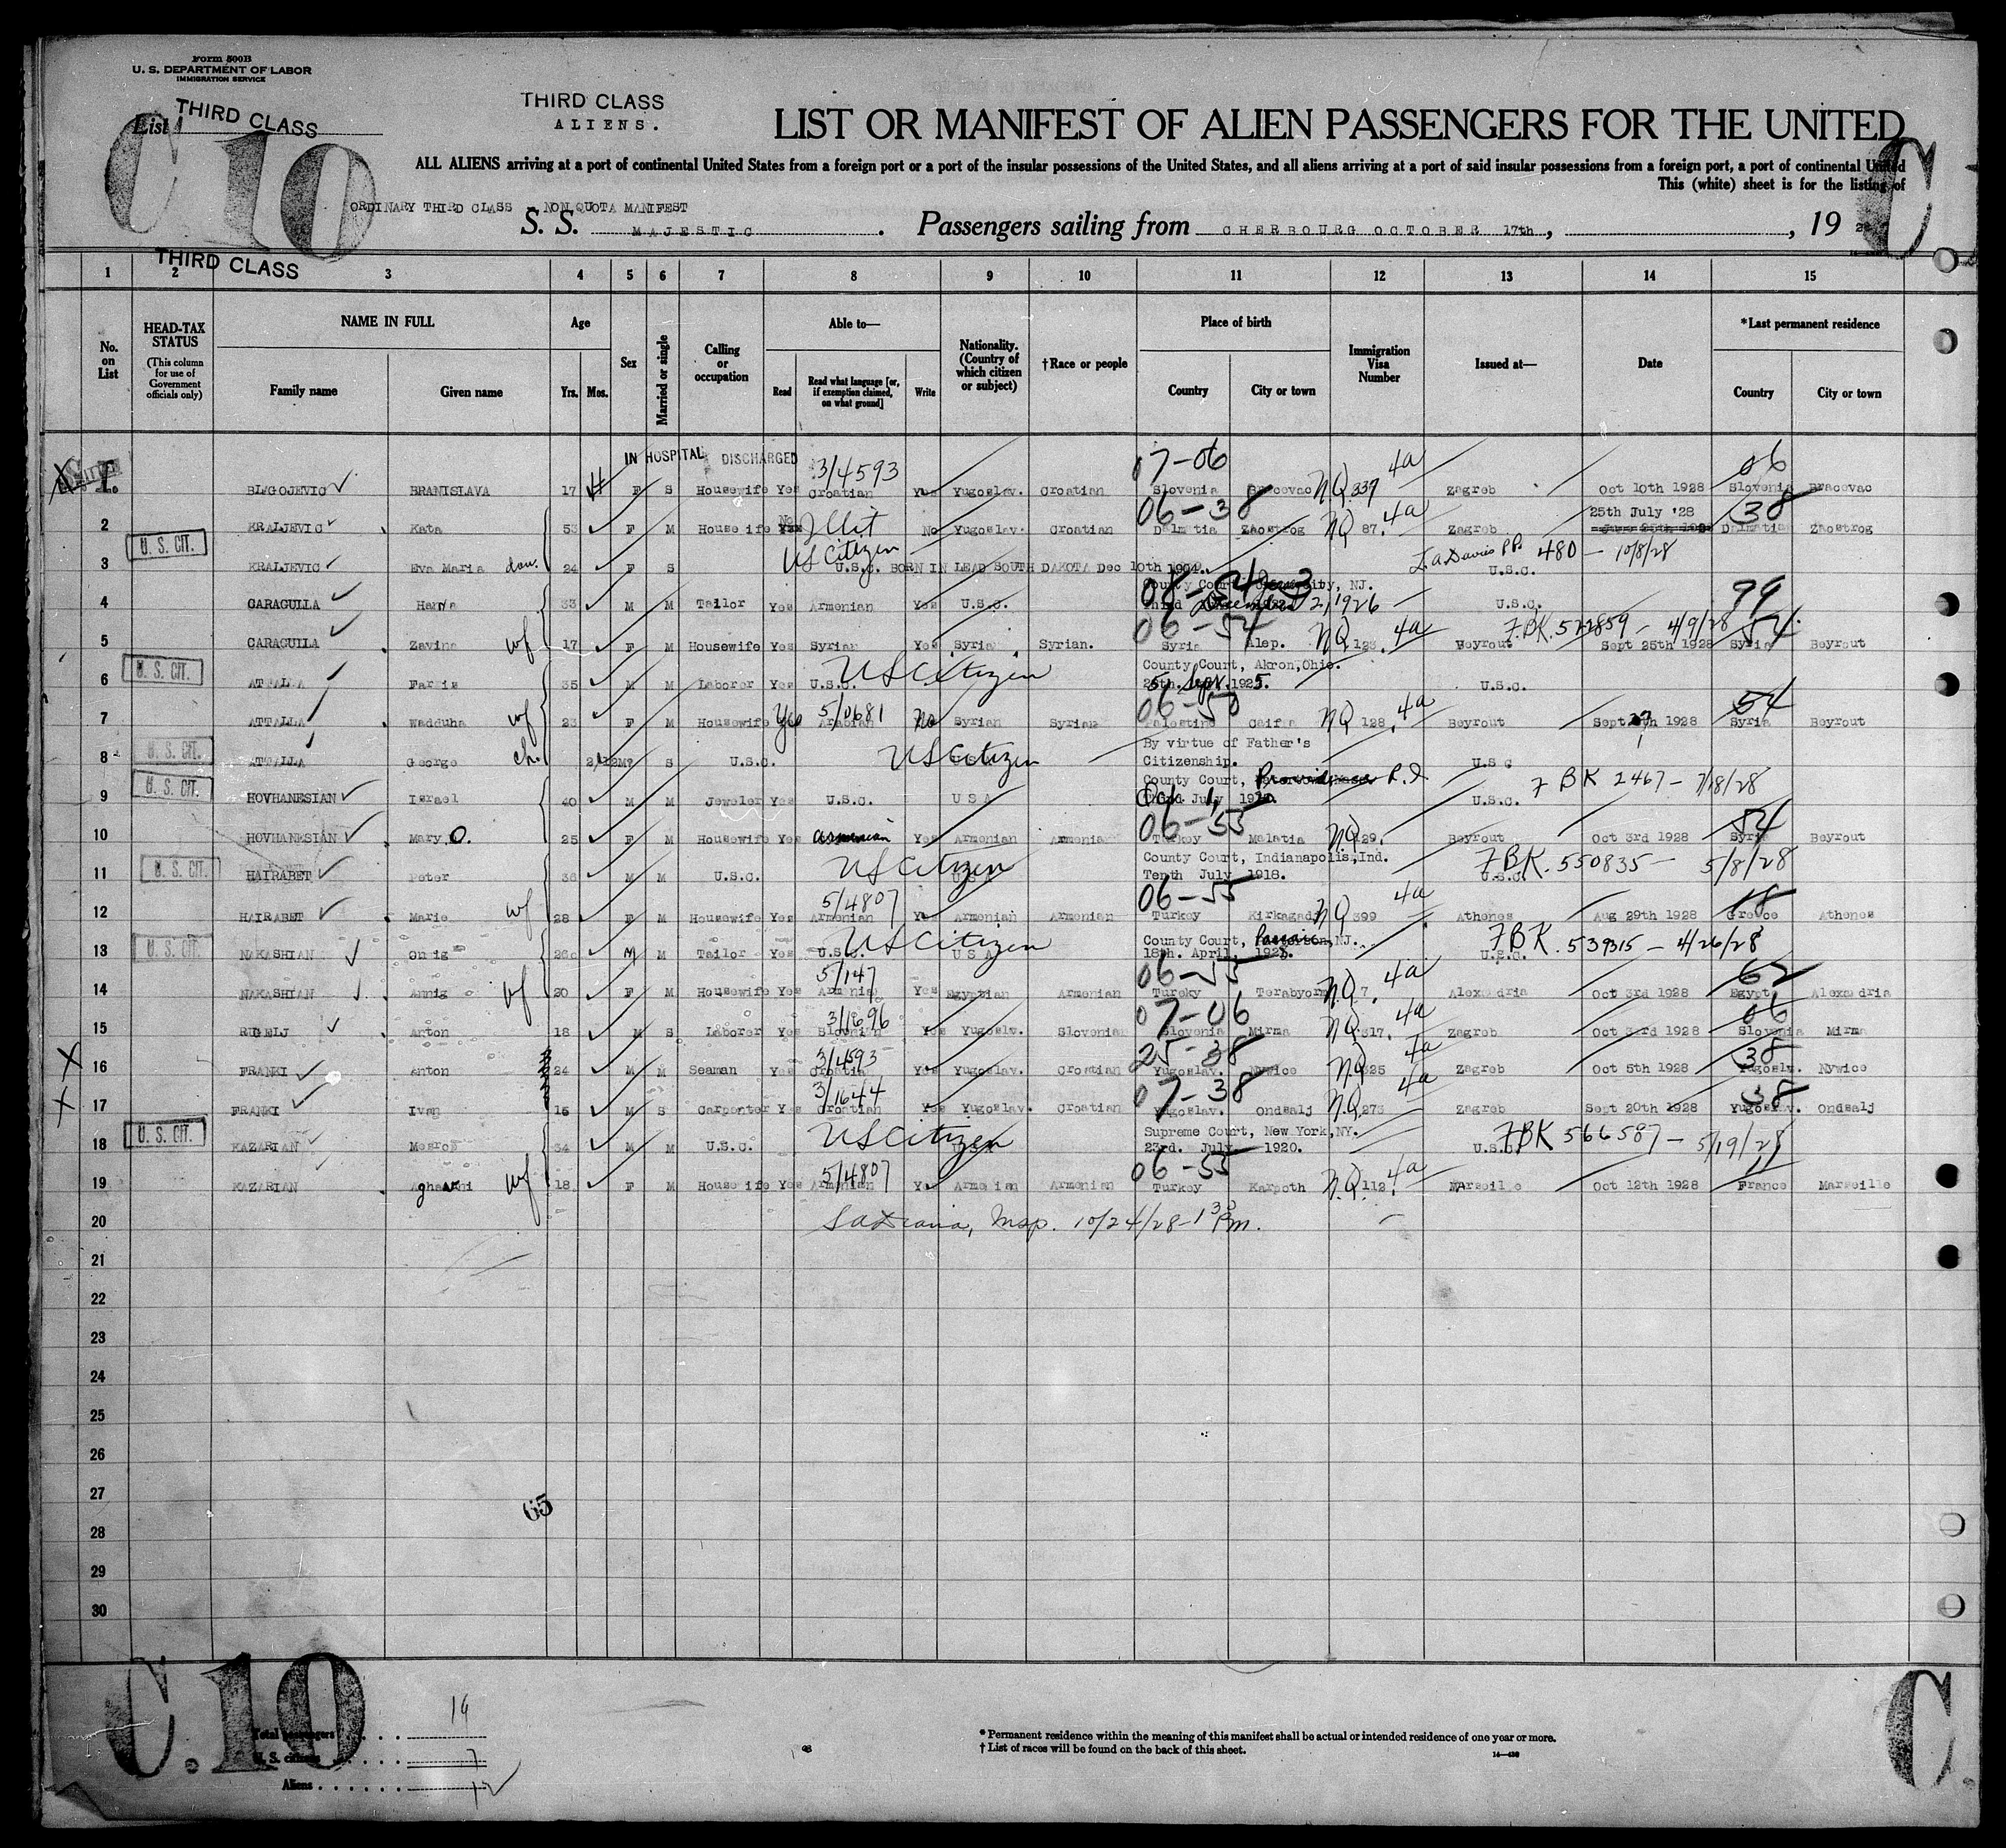 Form 500B
U. S. DEPARTMENT OF LABOR
IMMIGRATION SERVICE
THIRD CLASS
List
C 10
THIRD CLASS
ALIENS.
LIST OR MANIFEST OF ALIEN PASSENGERS FOR THE UNITED
ALL ALIENS arriving at a port of continental United States from a foreign port or a port of the insular possessions of the United States, and all aliens arriving at a port of said insular possessions from a foreign port, a port of continental United
This (white) sheet is for the listing of
ORDINARY THIRD CLASS - NON QUOTA MANIFEST
S. S. MAJESTIC. Passengers sailing from CHERBOURG OCTOBER 17th, , 19 28
C
THIRD CLASS
1 2 3 4 5 6 7 8 9 10 11 12 13 14 15
No. on List
HEAD-TAX STATUS
(This column for use of Government officials only)
NAME IN FULL
Family name Given name
Age
Yrs. Mos.
Sex
Married or single
Calling or occupation
Able to—
Read Read what language [or, if exemption claimed, on what ground] Write
Nationality. (Country of which citizen or subject)
†Race or people
Place of birth
Country City or town
Immigration Visa Number
Issued at—
Date
*Last permanent residence
Country City or town
IN HOSPITAL DISCHARGED 3/4593 07-06 4a 06
1 BLAGOJEVIC BRANISLAVA 17 F S Housewife Yes Croatian Yes Yugoslav. Croatian Slovenia Bracovac NQ 339 Zagreb Oct 10th 1928 Slovenia Bracovac
06-38 4a 25th July '28 38
2 KRALJEVIC Kata 53 F M Housewife No Illit No Yugoslav. Croatian Dalmatia Zaostrog NQ 87. Zagreb Dalmatia Zaostrog
U. S. CIT. US Citizen PP. 480 - 10/8/28
3 KRALJEVIC Eva Maria dau. 24 F S U.S.C. BORN IN LEAD SOUTH DAKOTA Dec 10th 1904. U.S.C.
County Court, NJ. 99
4 CARAGULLA Harna 33 M M Tailor Yes Armenian Yes U.S.C. December 2, 1926 U.S.C.
06-54 4a 7BK.522859 - 4/9/28 54
5 CARAGULLA Zavina wf 17 F M Housewife Yes Syrian Yes Syria Syrian. Syria Alep. NQ 123. Beyrout Sept 25th 1928 Syria Beyrout
U. S. CIT. US Citizen County Court, Akron, Ohio.
6 ATTALLA Farris 35 M M Laborer Yes U.S.C. 1925. U.S.C.
5/0681 06-50 4a 54
7 ATTALLA Wadduha wf 23 F M Housewife Yes Arabian No Syrian Syrian Palestine Caifa NQ 128. Beyrout Sept 1928 Syria Beyrout
U. S. CIT. US Citizen By virtue of Father's
8 ATTALLA George ch. S U.S.C. Citizenship. U.S.C
U. S. CIT. County Court, Providence R.I 7 BK 2467 - 7/18/28
9 HOVHANESIAN Israel 40 M M Jeweler Yes U.S.C. U S A U.S.C.
06-55 54
10 HOVHANESIAN Mary O. 25 F M Housewife Yes Armenian Yes Armenian Armenia Turkey Malatia NQ 29. Beyrout Oct 3rd 1928 Syria Beyrout
U. S. CIT. US Citizen County Court, Indianapolis, Ind. 7BK.550835 - 5/8/28
11 HAIRABET Peter 36 M M U.S.C. Tenth July 1918. U.S.C.
5/4807 06-55 4a 18
12 HAIRABET Marie wf 28 F M Housewife Yes Armenian Yes Armenian Armenian Turkey Kirkagadj NQ 399 Athenes Aug 29th 1928 Greece Athenes
U. S. CIT. US Citizen County Court, NJ. 7BK. 539315 - 4/26/28
13 NAKASHIAN Onnig 26 M M Tailor Yes U.S.C. U S A 18th. April U.S.C.
5/147 06-55 4a 62
14 NAKASHIAN Annig wf 20 F M Housewife Yes Armenia Yes Egyptian Armenian Tureky Terabyorm N.Q. 7. Alexandria Oct 3rd 1928 Egypt Alexandria
3/1696 07-06 4a 06
15 RUGELJ Anton 18 M S Laborer Yes Slovenian Yes Yugoslv. Slovenian Slovenia Mirna NQ 317. Zagreb Oct 3rd 1928 Slovenia Mirna
3/4593 25-38 4a 38
16 FRANKI Anton 24 M M Seaman Yes Croatia Yes Yugoslav. Croatian Yugoslav. Nywice NQ 25 Zagreb Oct 5th 1928 Yugoslv. Nywice
3/1644 07-38 4a 38
17 FRANKI Ivan 16 M S Carpenter Yes Croatian Yes Yugoslav. Croatian Yugoslav. Ondsalj N.Q. 273 Zagreb Sept 20th 1928 Yugoslav. Ondsalj
U. S. CIT. US Citizen Supreme Court, New York, NY. 7BK 566587 - 5/19/28
18 KAZARIAN Mesrob 34 M M U.S.C. 23rd. July 1920. U.S.C.
5/4807 06-55 4a 11
19 KAZARIAN Aghavni wf 18 F M Housewife Yes Armenian Yes Armenian Armenian Turkey Karpoth N.Q. 112. Marseille Oct 12th 1928 France Marseille
20 Insp. 10/24/28 - 1 30 Pm.
21
22
23
24
25
26
27
65
28
29
30
C.10
Total passengers 19
U. S. citizens 7
Aliens 12
* Permanent residence within the meaning of this manifest shall be actual or intended residence of one year or more.
† List of races will be found on the back of this sheet.
14—430
C.